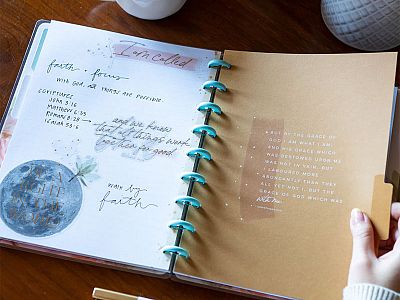 I am called
faith + focus
with God, all things are possible.
scriptures
John 3:16
Matthew 6:33
Romans 8:28 →
Isaiah 53:5
and we know
that all things work
together for good
walk by
faith
BUT BY THE GRACE OF
GOD I AM WHAT I AM:
AND HIS GRACE WHICH
WAS BESTOWED UPON ME
WAS NOT IN VAIN; BUT
I LABOURED MORE
ABUNDANTLY THAN THEY
ALL: YET NOT I, BUT THE
GRACE OF GOD WHICH WAS
with me.